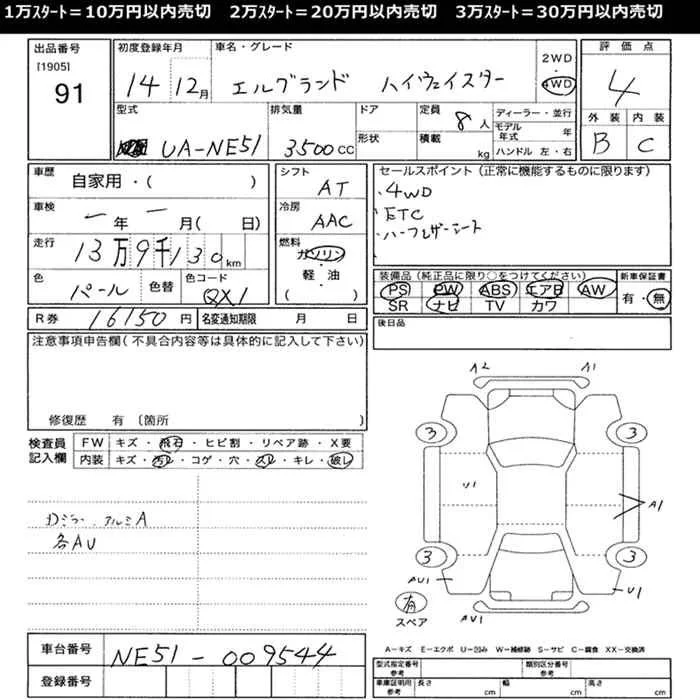 1万ｽﾀｰﾄ＝10万円以内売切　2万ｽﾀｰﾄ＝20万円以内売切　3万ｽﾀｰﾄ＝30万円以内売切
出品番号
[1905]
91
初度登録年月
14 12月
車名・グレード
エルグランド ハイウェイスター
2WD
4WD
評価点
4
外装 内装
B C
型式
UA-NE51
排気量
3500cc
ドア
形状
定員 8人
積載 kg
ディーラー・並行
モデル年式 年
ハンドル 左・右
車歴 自家用・( )
車検 ー年ー月( 日)
走行 13万9千130km
色 パール 色替
色コード QX1
シフト
AT
冷房
AAC
燃料
ガソリン
軽・油
( )
セールスポイント (正常に機能するものに限ります)
・4WD
・ETC
・ハーフレザーシート
装備品 (純正品に限り○をつけてください)
PS PW ABS エアB AW
SR ナビ TV カワ
新車保証書
有・無
R券 16150円 名変通知期限 月 日
後日品
注意事項申告欄(不具合内容等は具体的に記入して下さい)
修復歴 有〔箇所
検査員記入欄
FW キズ・飛石・ヒビ割・リペア跡・X要
内装 キズ・汚レ・コゲ・穴・スレ・キレ・破レ
ミラー、アルミA
各AU
A2 A1
3 3
U1
A1
3 3
AU1 U1
AU1
有
スペア
A−キズ E−エクボ U−凹み W−補修跡 S−サビ C−腐食 XX−交換済
車台番号 NE51-009544
登録番号
型式指定番号 参考
類別区分番号 参考
車庫証明用 参考 長さ cm 幅 cm 高さ cm